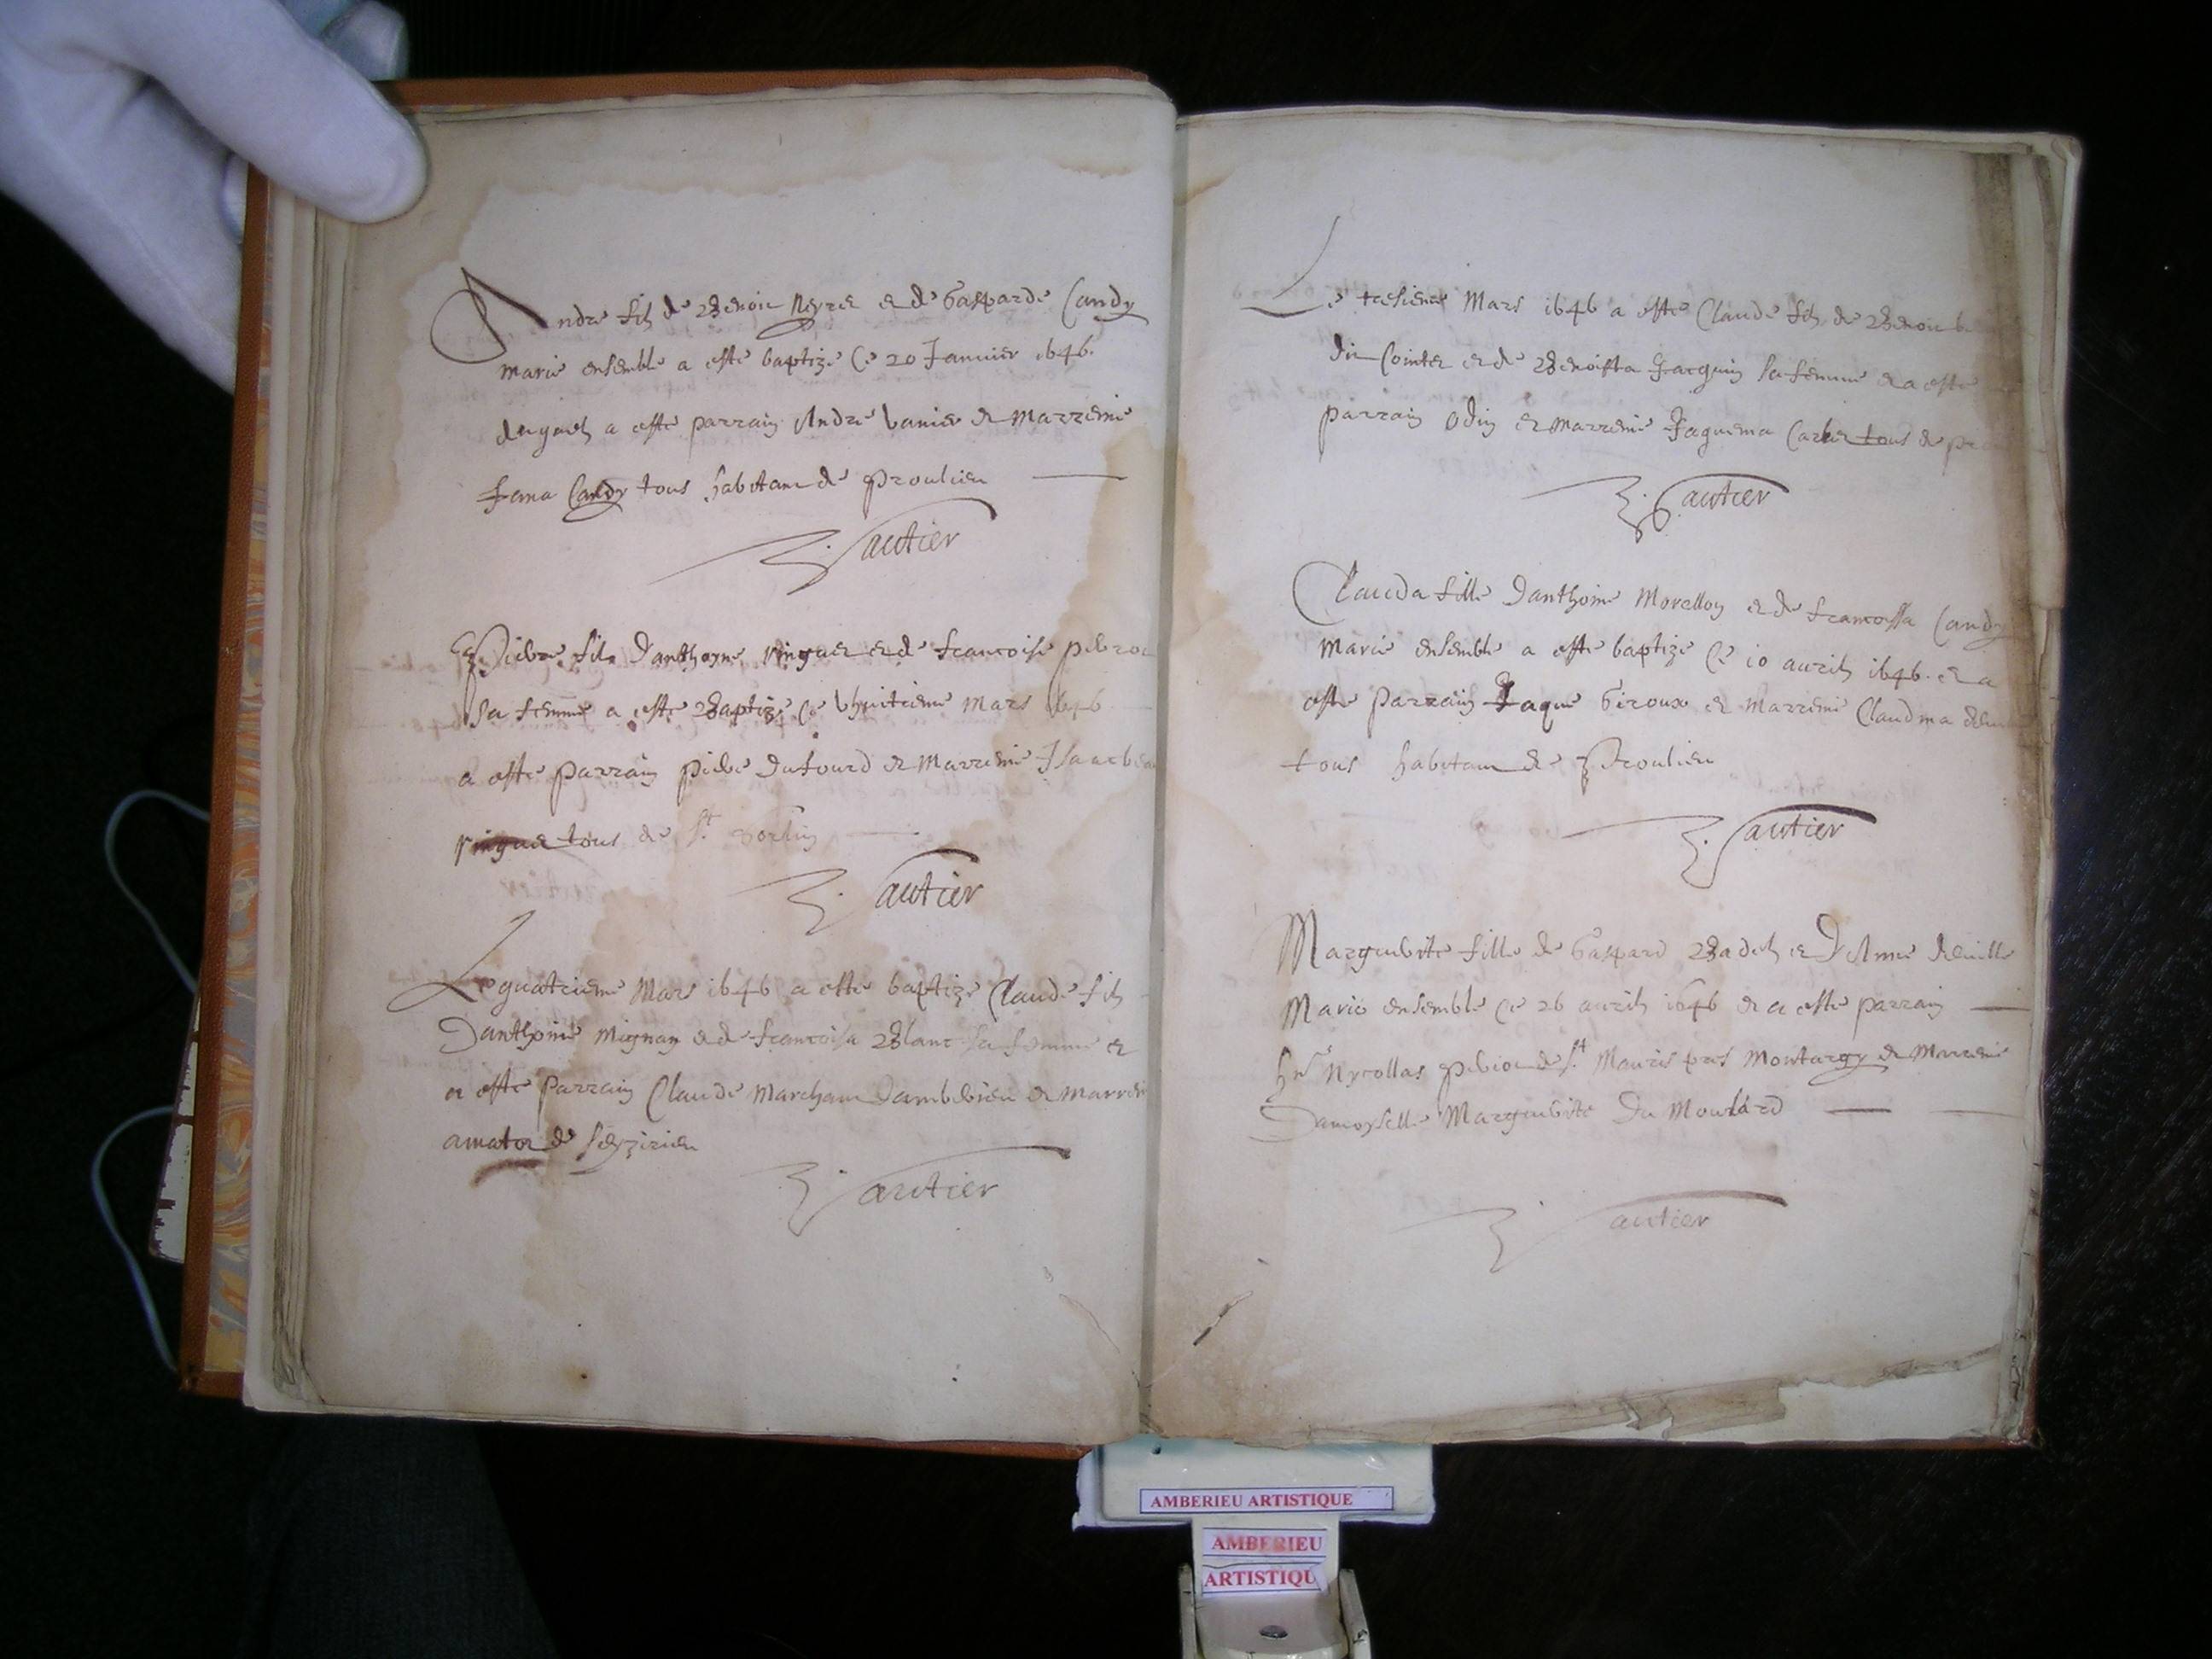 Andre fils de Benoit Neyret et de Gasparde Candy
marie ensemble a este baptize Ce 20 Januier 1646.
duquel a este parrain Andre Vanier et Marreine
Jana Candy tous habitant de Proulieu
Gautier
Pierre fils d'anthoyne ringuet et de francoise
sa femme a este Baptize Ce vhuitieme Mars 1646
a este parrain pierre dutourd et Marreine
ringuet tous de St Sorlin
Gautier
Le quatrieme Mars 1646 a este baptize Claude fils
Danthoine Mignay et de francoisa Blanc sa femme et
a este parrain Claude Marchant damberieu et
de
Gautier
Le Mars 1646 a este Claude fils de Benoit
dit Cointet et de Benoista Jacquin sa femme et a este
parrain Odin et Marreine Jaquema tous de
Gautier
Clauda fille Danthoine Morellon et de francoissa Candy
Marie ensemble a este baptize Ce 10 auril 1646. et a
este parrain Jaque Giroux et Marreine
tous habitant de Proulieu
Gautier
Marguerite fille de Gaspard Badel et D'Anne
Marie ensemble Ce 26 auril 1646 et a este parrain
Nycollas de St Mauris pres Montargy et Marreine
Damoyselle Marguerite Du Moulard
Gautier
AMBERIEU ARTISTIQUE
AMBERIEU
ARTISTIQU